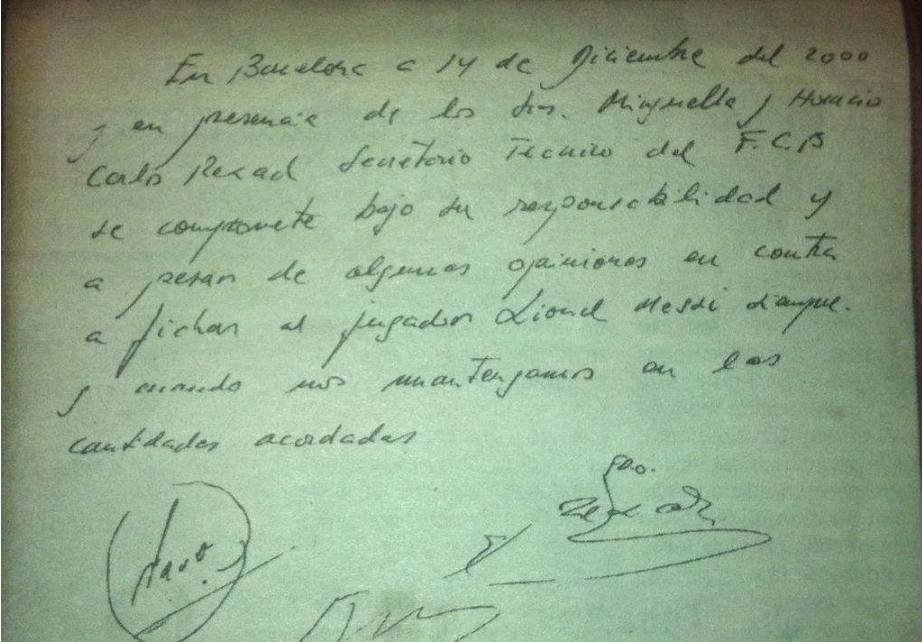 En Barcelona a 14 de Diciembre del 2000
y en presencia de los Srs. Minguella y Horacio
Carlos Rexach Secretario Técnico del F.C.B
se compromete bajo su responsabilidad y
a pesar de algunas opiniones en contra
a fichar al jugador Lionel Messi siempre.
y cuando nos mantengamos en las
cantidades acordadas